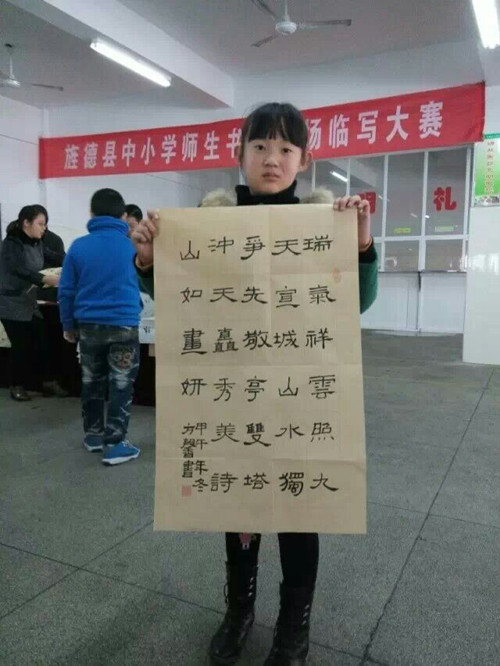 旌德县中小学师生书
场临写大赛
礼
瑞氣祥雲照九
天宣城山水獨
爭先敬亭雙塔
沖天矗秀美詩
山如畫妍
甲午年冬